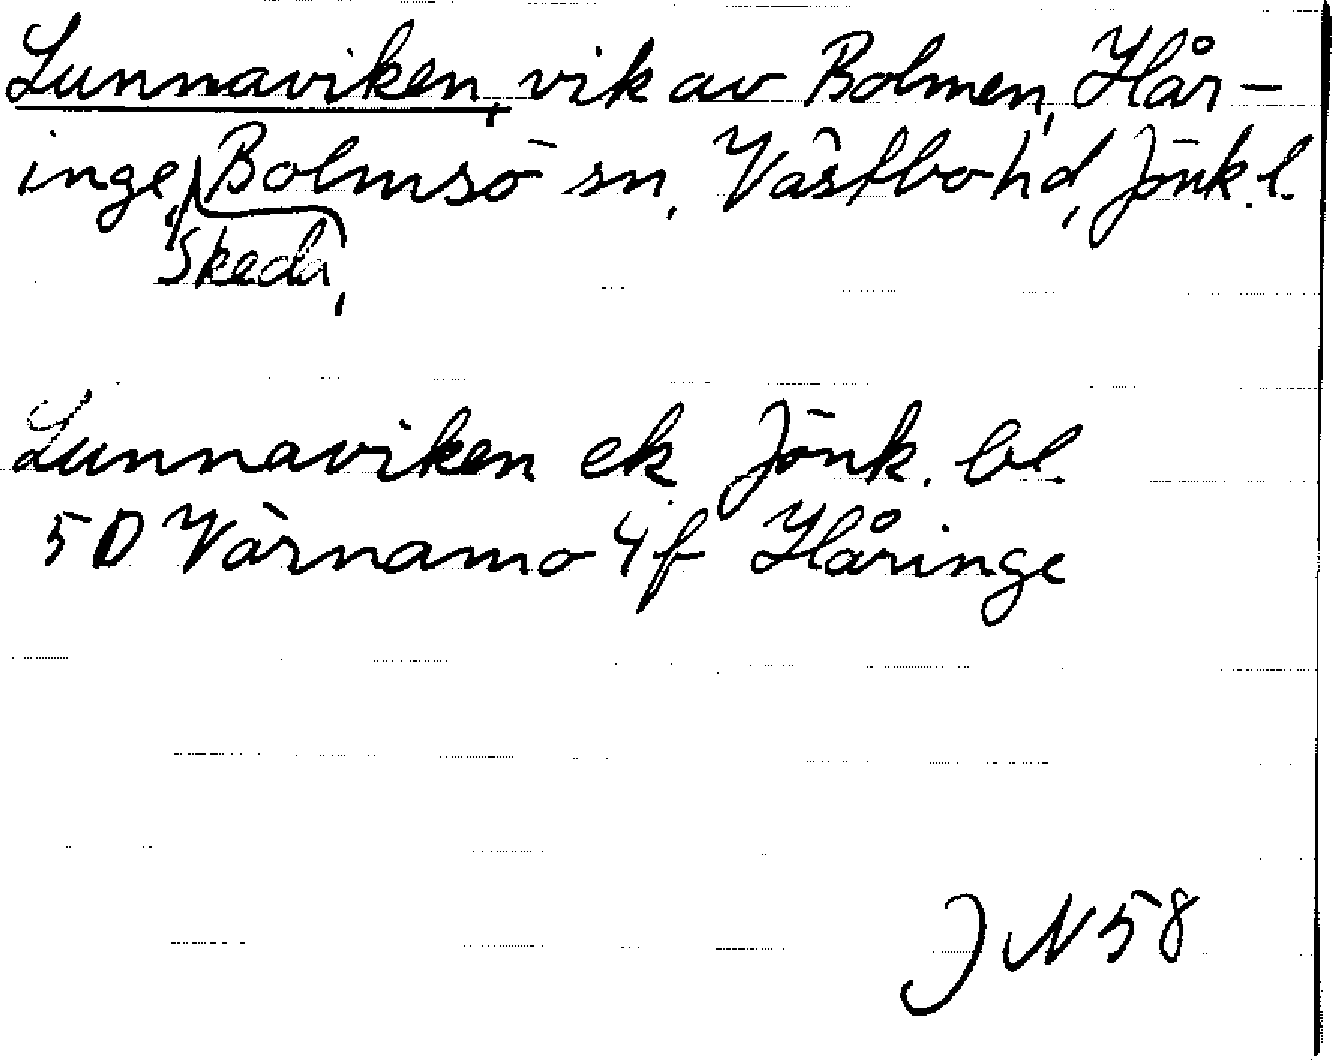 Lunnaviken, vik av Bolmen, Hår-
inge, Bolmsö sn, Västbo hd, Jönk. l.
Skeda,
Lunnaviken ek Jönk. bl.
5D Värnamo 4f Håringe
JN 58